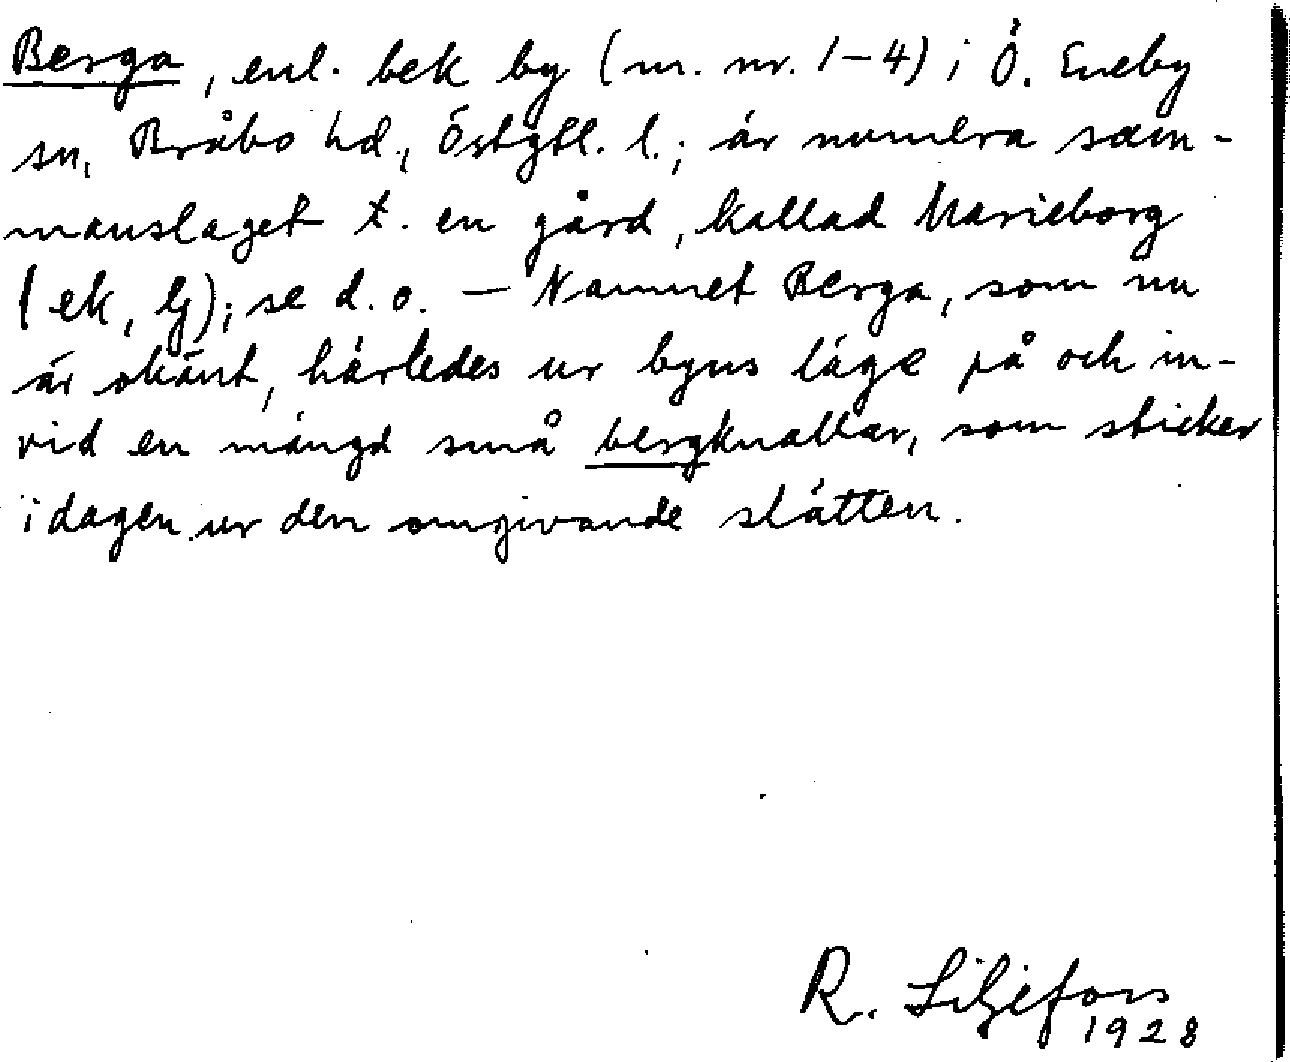 Berga, enl. bek by (m. nr. 1-4) i Ö. Eneby
sn, Bråbo hd., Östgtl. l.; är numera sam-
manslaget t. en gård, kallad Marieborg
(ek, lj); se d. o. — Namnet Berga, som nu
är okänt, härledes ur byns läge på och in-
vid en mängd små bergknallar, som sticker
i dagen ur den omgivande slätten.
R. Liljefors
1928